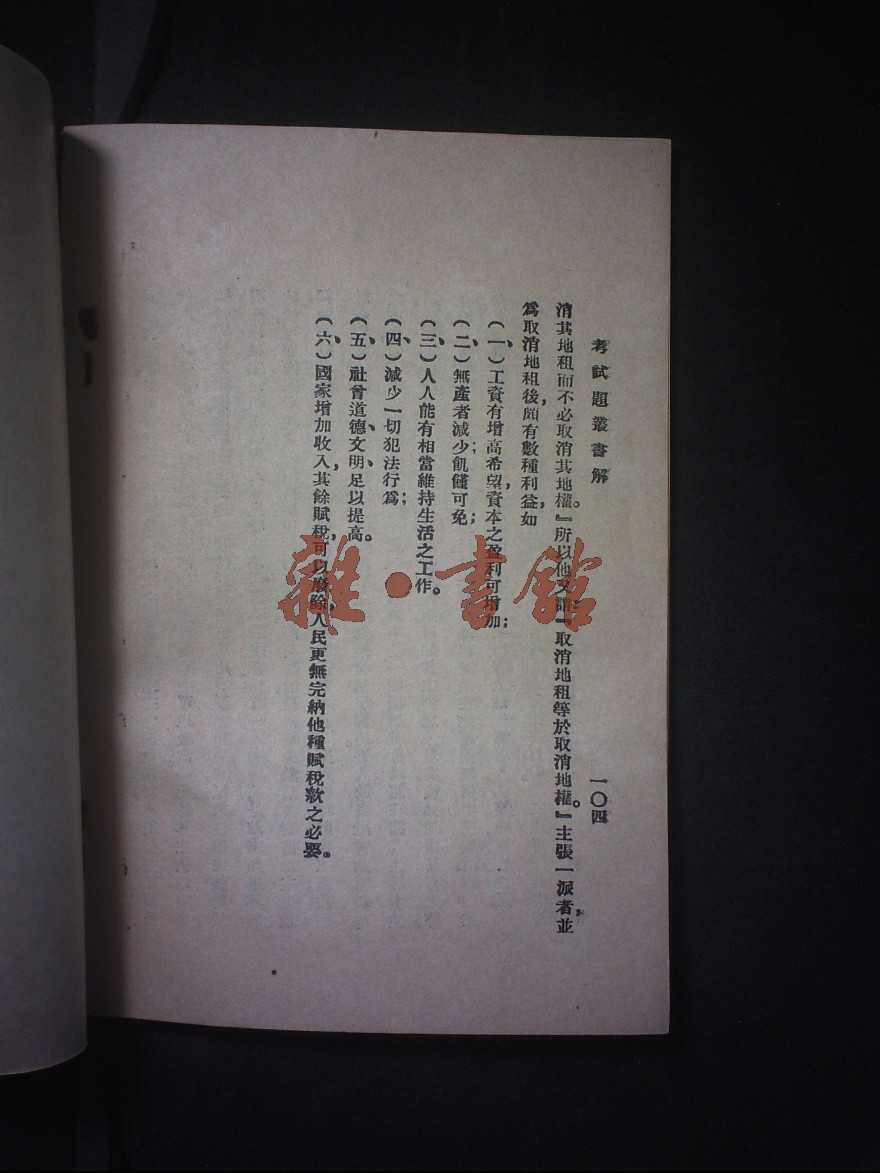 考試題叢書解
一〇四
消其地租而不必取消其地權。』所以他又謂：『取消地租等於取消地權。』主張一派者，並
爲取消地租後，頗有數種利益，如
（一）、工資有增高希望，資本之盈利可增加；
（二）、無產者減少，飢饉可免；
（三）、人人能有相當維持生活之工作。
（四）、減少一切犯法行爲；
（五）、社會道德、文明、足以提高。
（六）、國家增加收入，其餘賦稅，可以廢除，人民更無完納他種賦稅欵之必要。
雜·書館